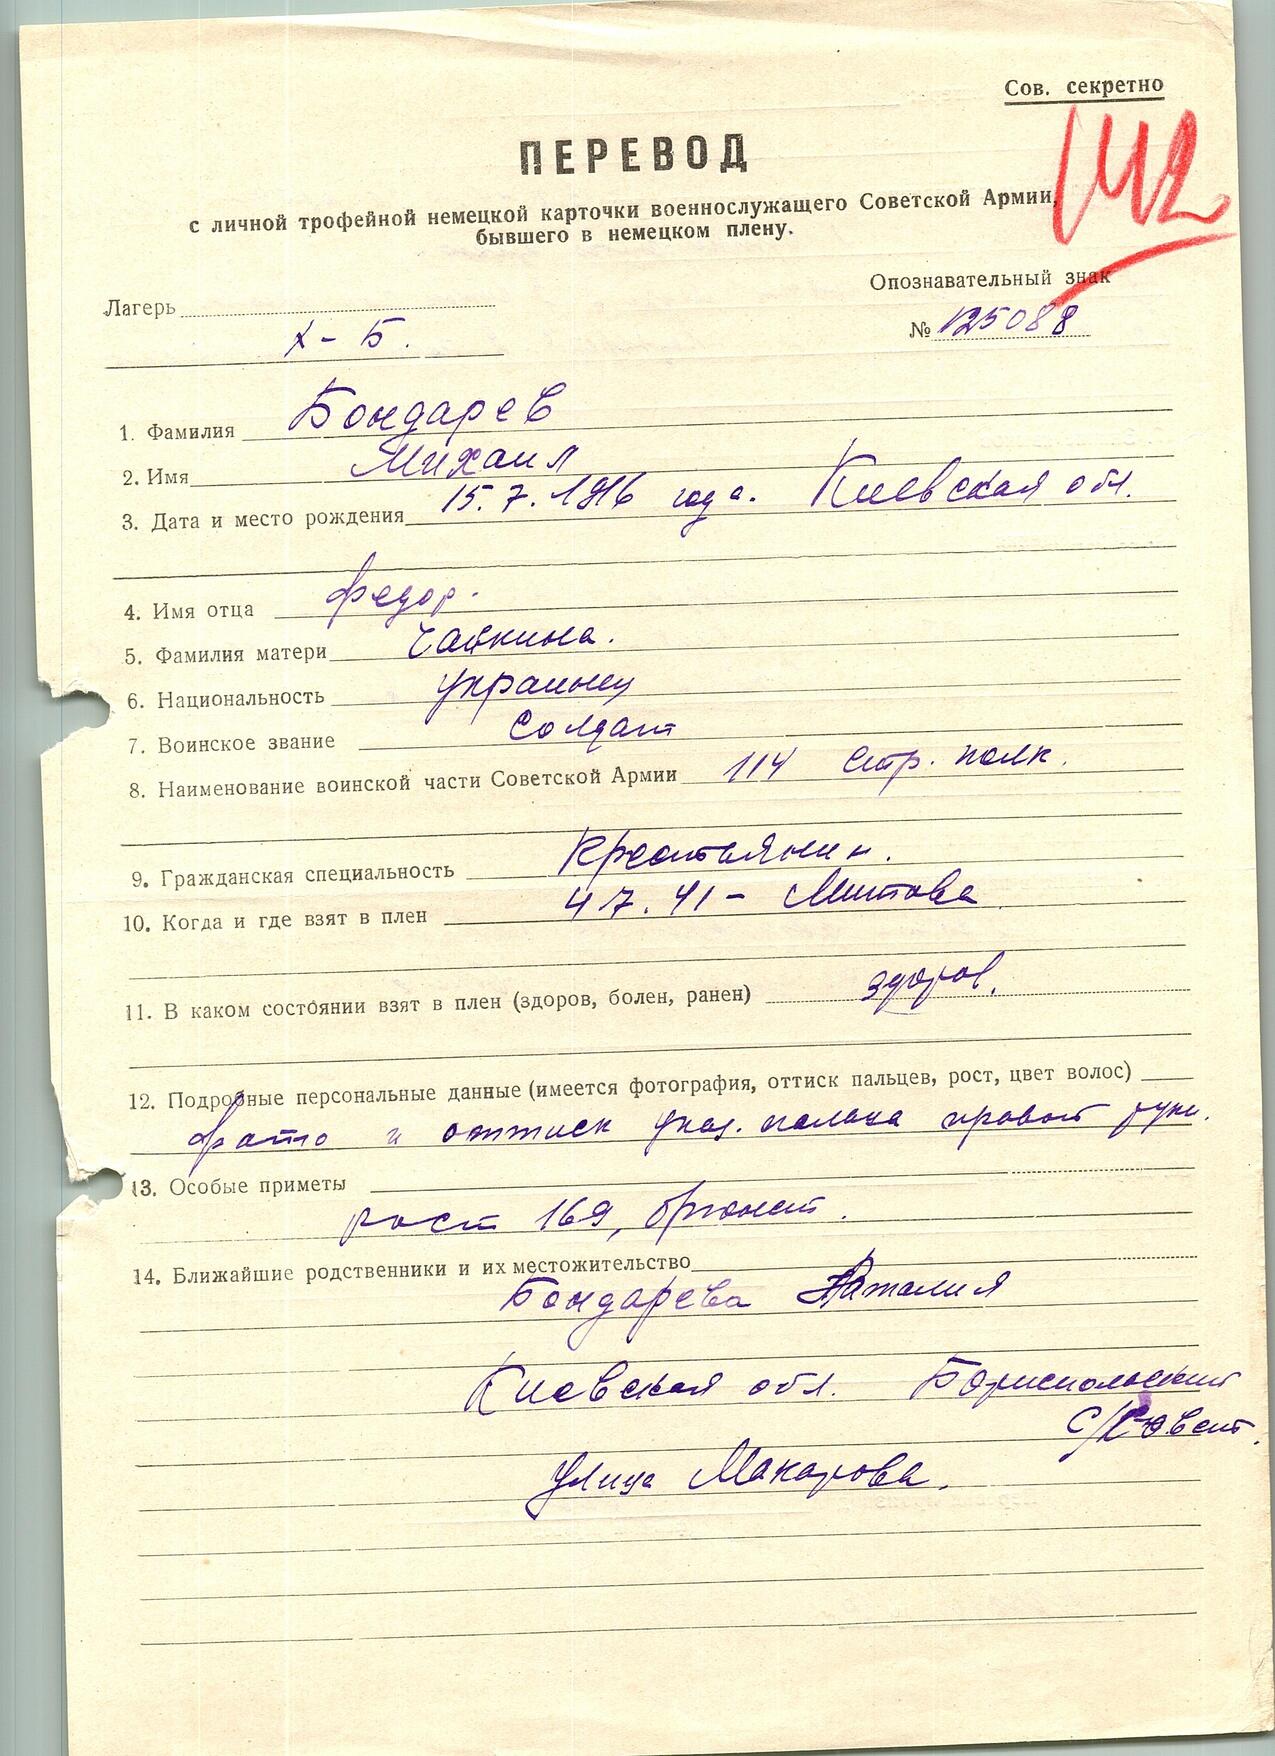 Сов. секретно
142
ПЕРЕВОД
с личной трофейной немецкой карточки военнослужащего Советской Армии,
бывшего в немецком плену.
Опознавательный знак
Лагерь
№ 125088
X – Б.
1. Фамилия Бондарев
2. Имя Михаил
3. Дата и место рождения 15.7.1916 года. Киевская обл.
4. Имя отца Федор.
5. Фамилия матери Чайкина.
6. Национальность украинец
7. Воинское звание Солдат
8. Наименование воинской части Советской Армии 114 стр. полк.
9. Гражданская специальность Крестьянин.
10. Когда и где взят в плен 4 7. 41 – Митова
11. В каком состоянии взят в плен (здоров, болен, ранен) здоров.
12. Подробные персональные данные (имеется фотография, оттиск пальцев, рост, цвет волос)
фото и оттиск указ. пальца правой руки.
13. Особые приметы
рост 169, брюнет.
14. Ближайшие родственники и их местожительство
Бондарева Наталия
Киевская обл. Бориспольский
с/Совет.
улица Макарова.